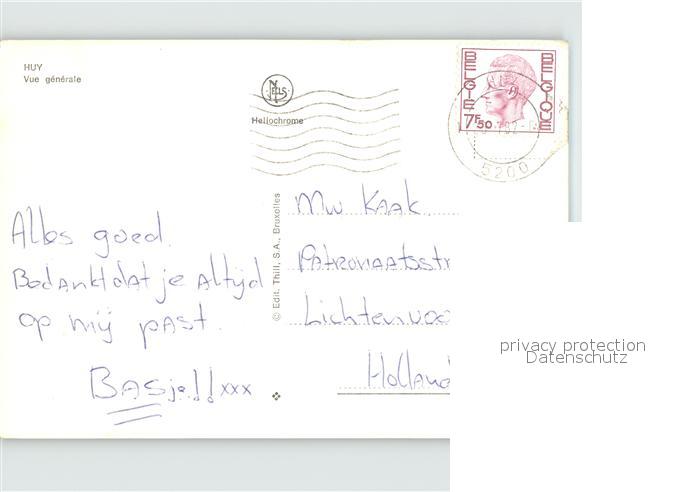 HUY
Vue générale
NELS
Heliochrome
BELGIE BELGIQUE
7F50
5200
© Edit. Thill, S.A., Bruxelles
Alles goed.
Bedankt dat je altijd
op mij past.
BASje!! xxx
Mw KAAK.
Patronaatsstr
Lichtenvoo
Holland
privacy protection
Datenschutz